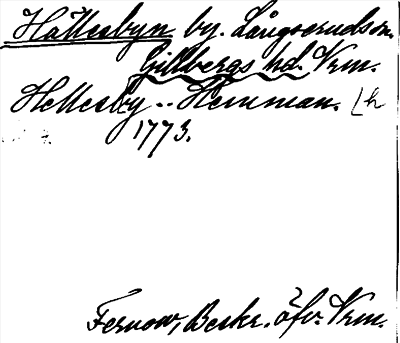 Hällesbyn by. Långseruds sn.
Gillbergs hd. Vrm.
Hellesby .. Hemman. [h
1773.
Fernow, Beskr. öfv. Vrm.